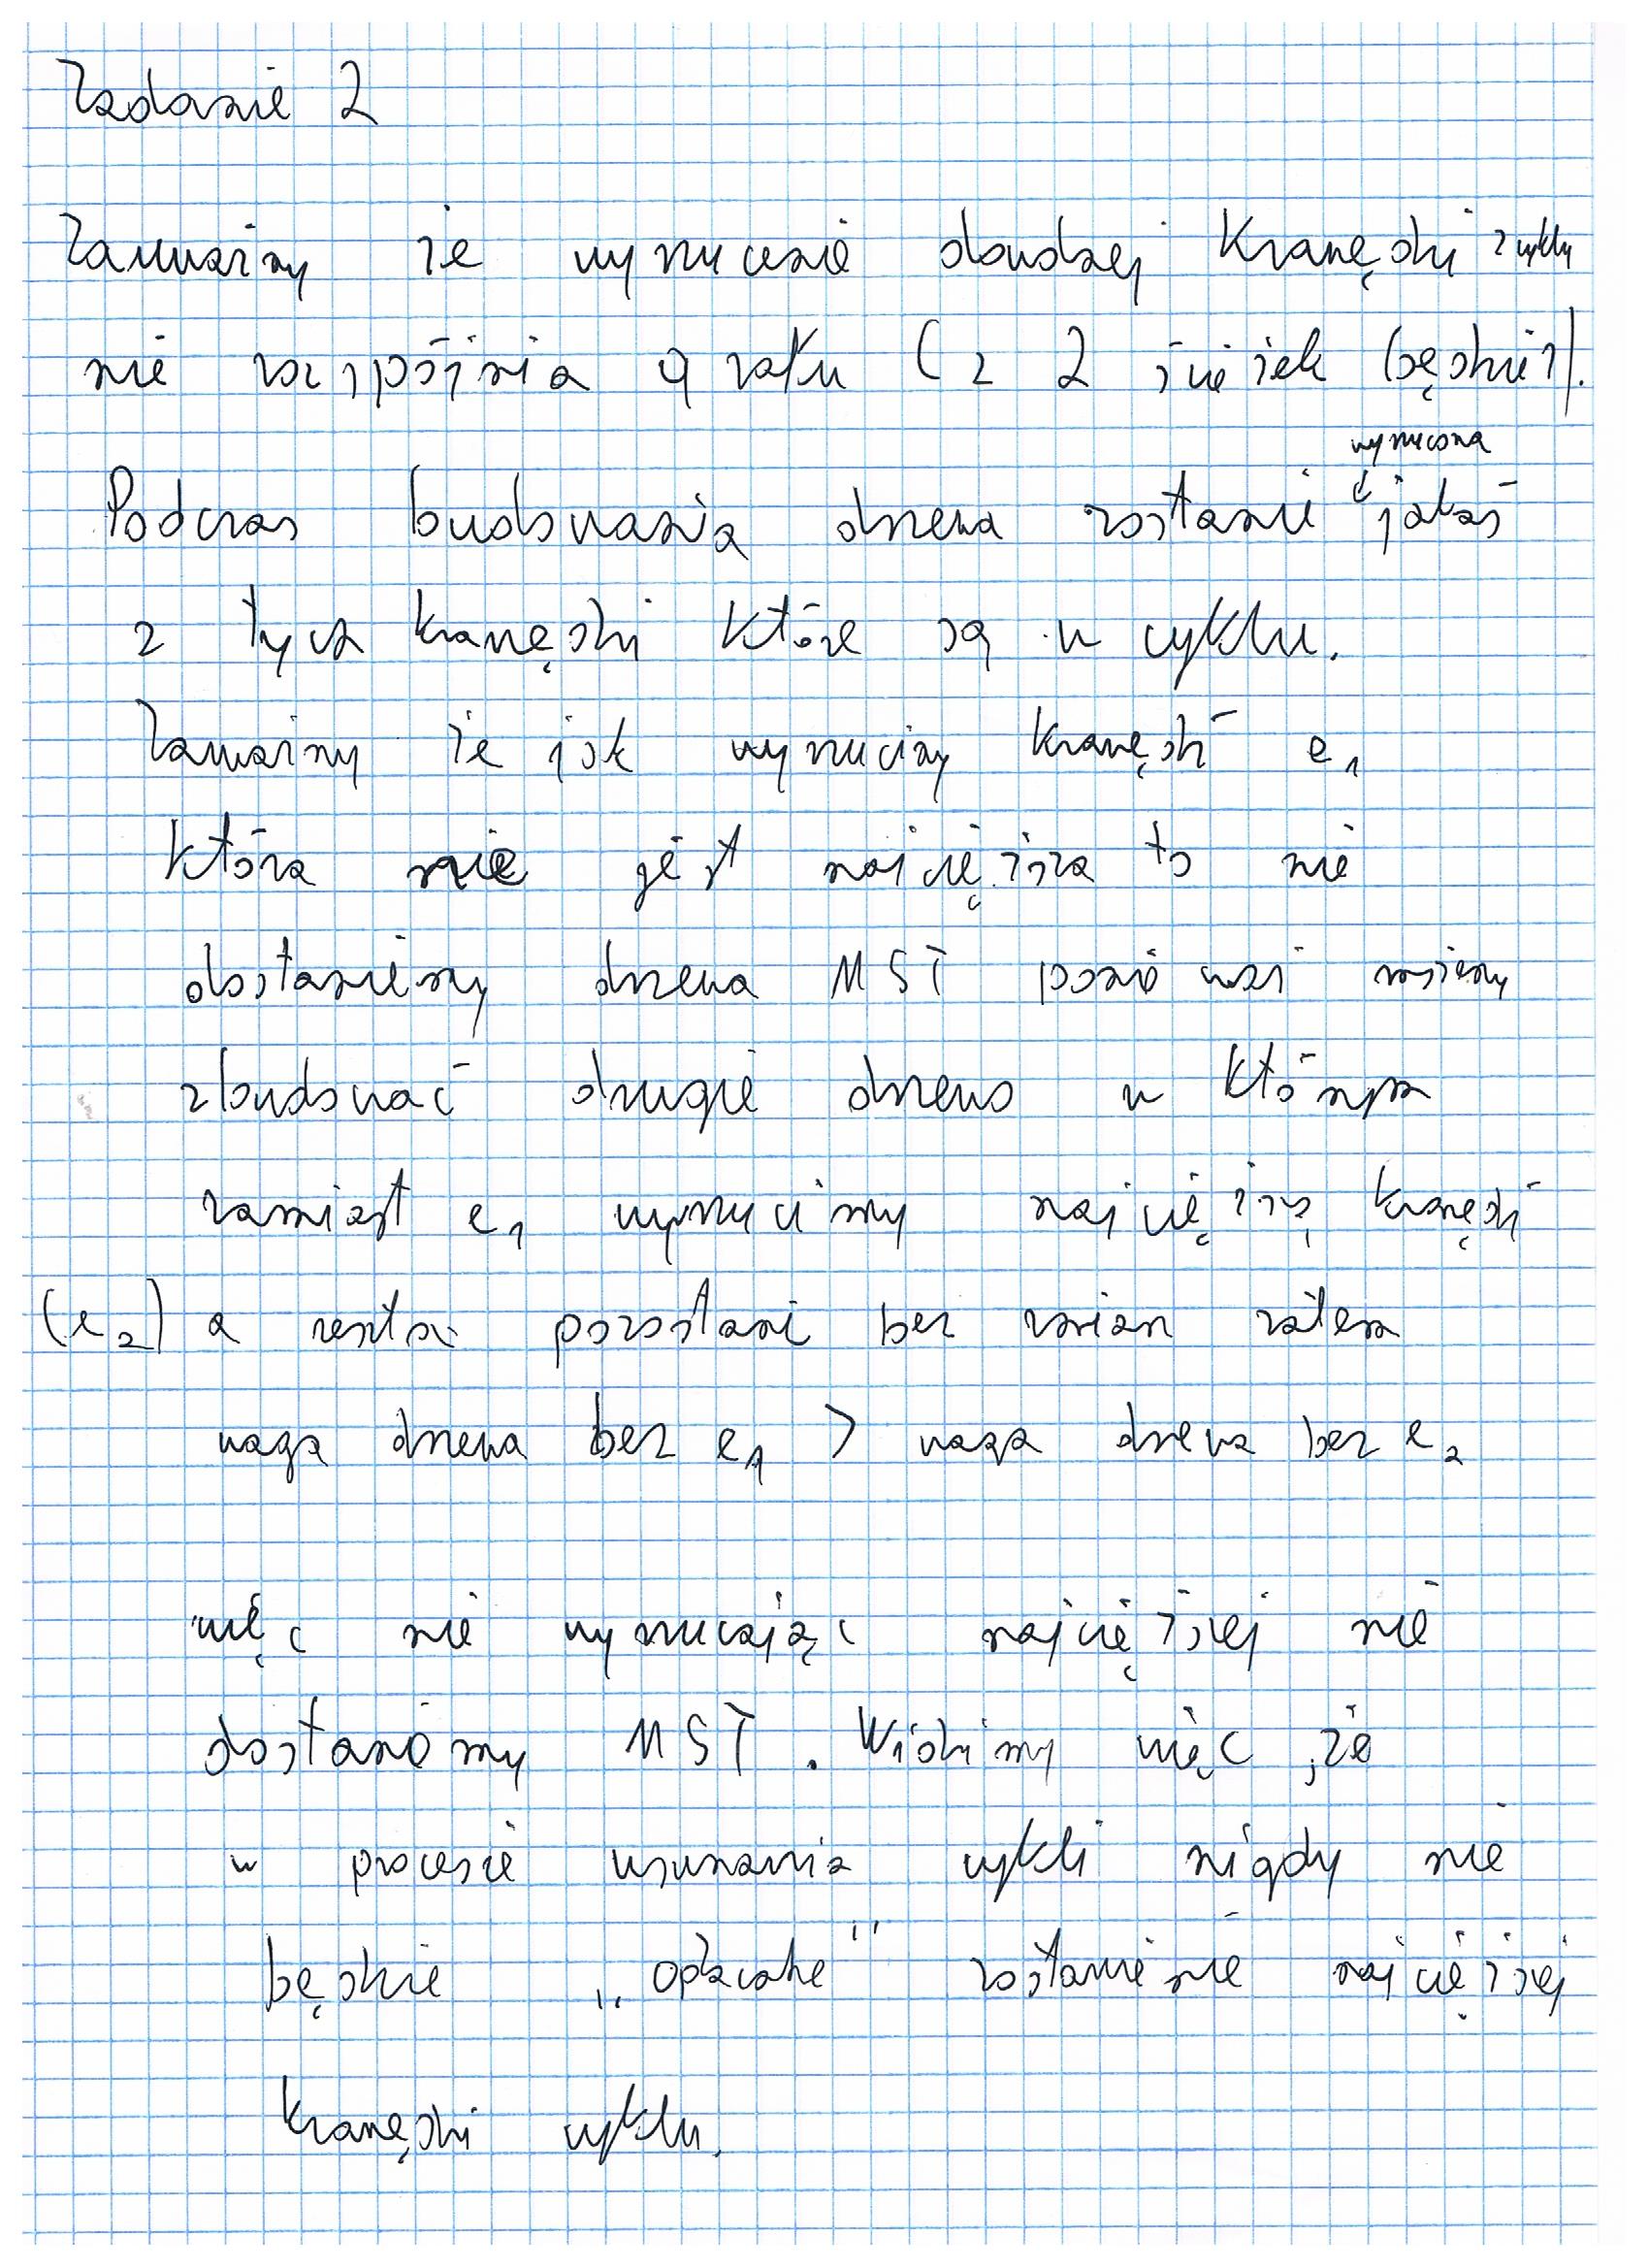 Zadanie 2
Zauważmy że wyrzucenie dowolnej krawędzi z cyklu
nie rozspójnia grafu (z 2 ścieżek będzie 1).
wyrzucona
Podczas budowania drzewa zostanie jakaś
z tych krawędzi które są w cyklu.
Zauważmy że jak wyrzucimy krawędź e₁
która nie jest najcięższa to nie
dostaniemy drzewa MST ponieważ możemy
zbudować drugie drzewo w którym
zamiast e₁ wyrzucimy najcięższą krawędź
(e₂) a reszta pozostanie bez zmian zatem
waga drzewa bez e₁ > waga drzewa bez e₂
więc nie wyrzucając najcięższej nie
dostaniemy MST. Widzimy więc, że
w procesie usuwania cykli nigdy nie
będzie „opłacalne" zostawienie najcięższej
krawędzi cyklu.